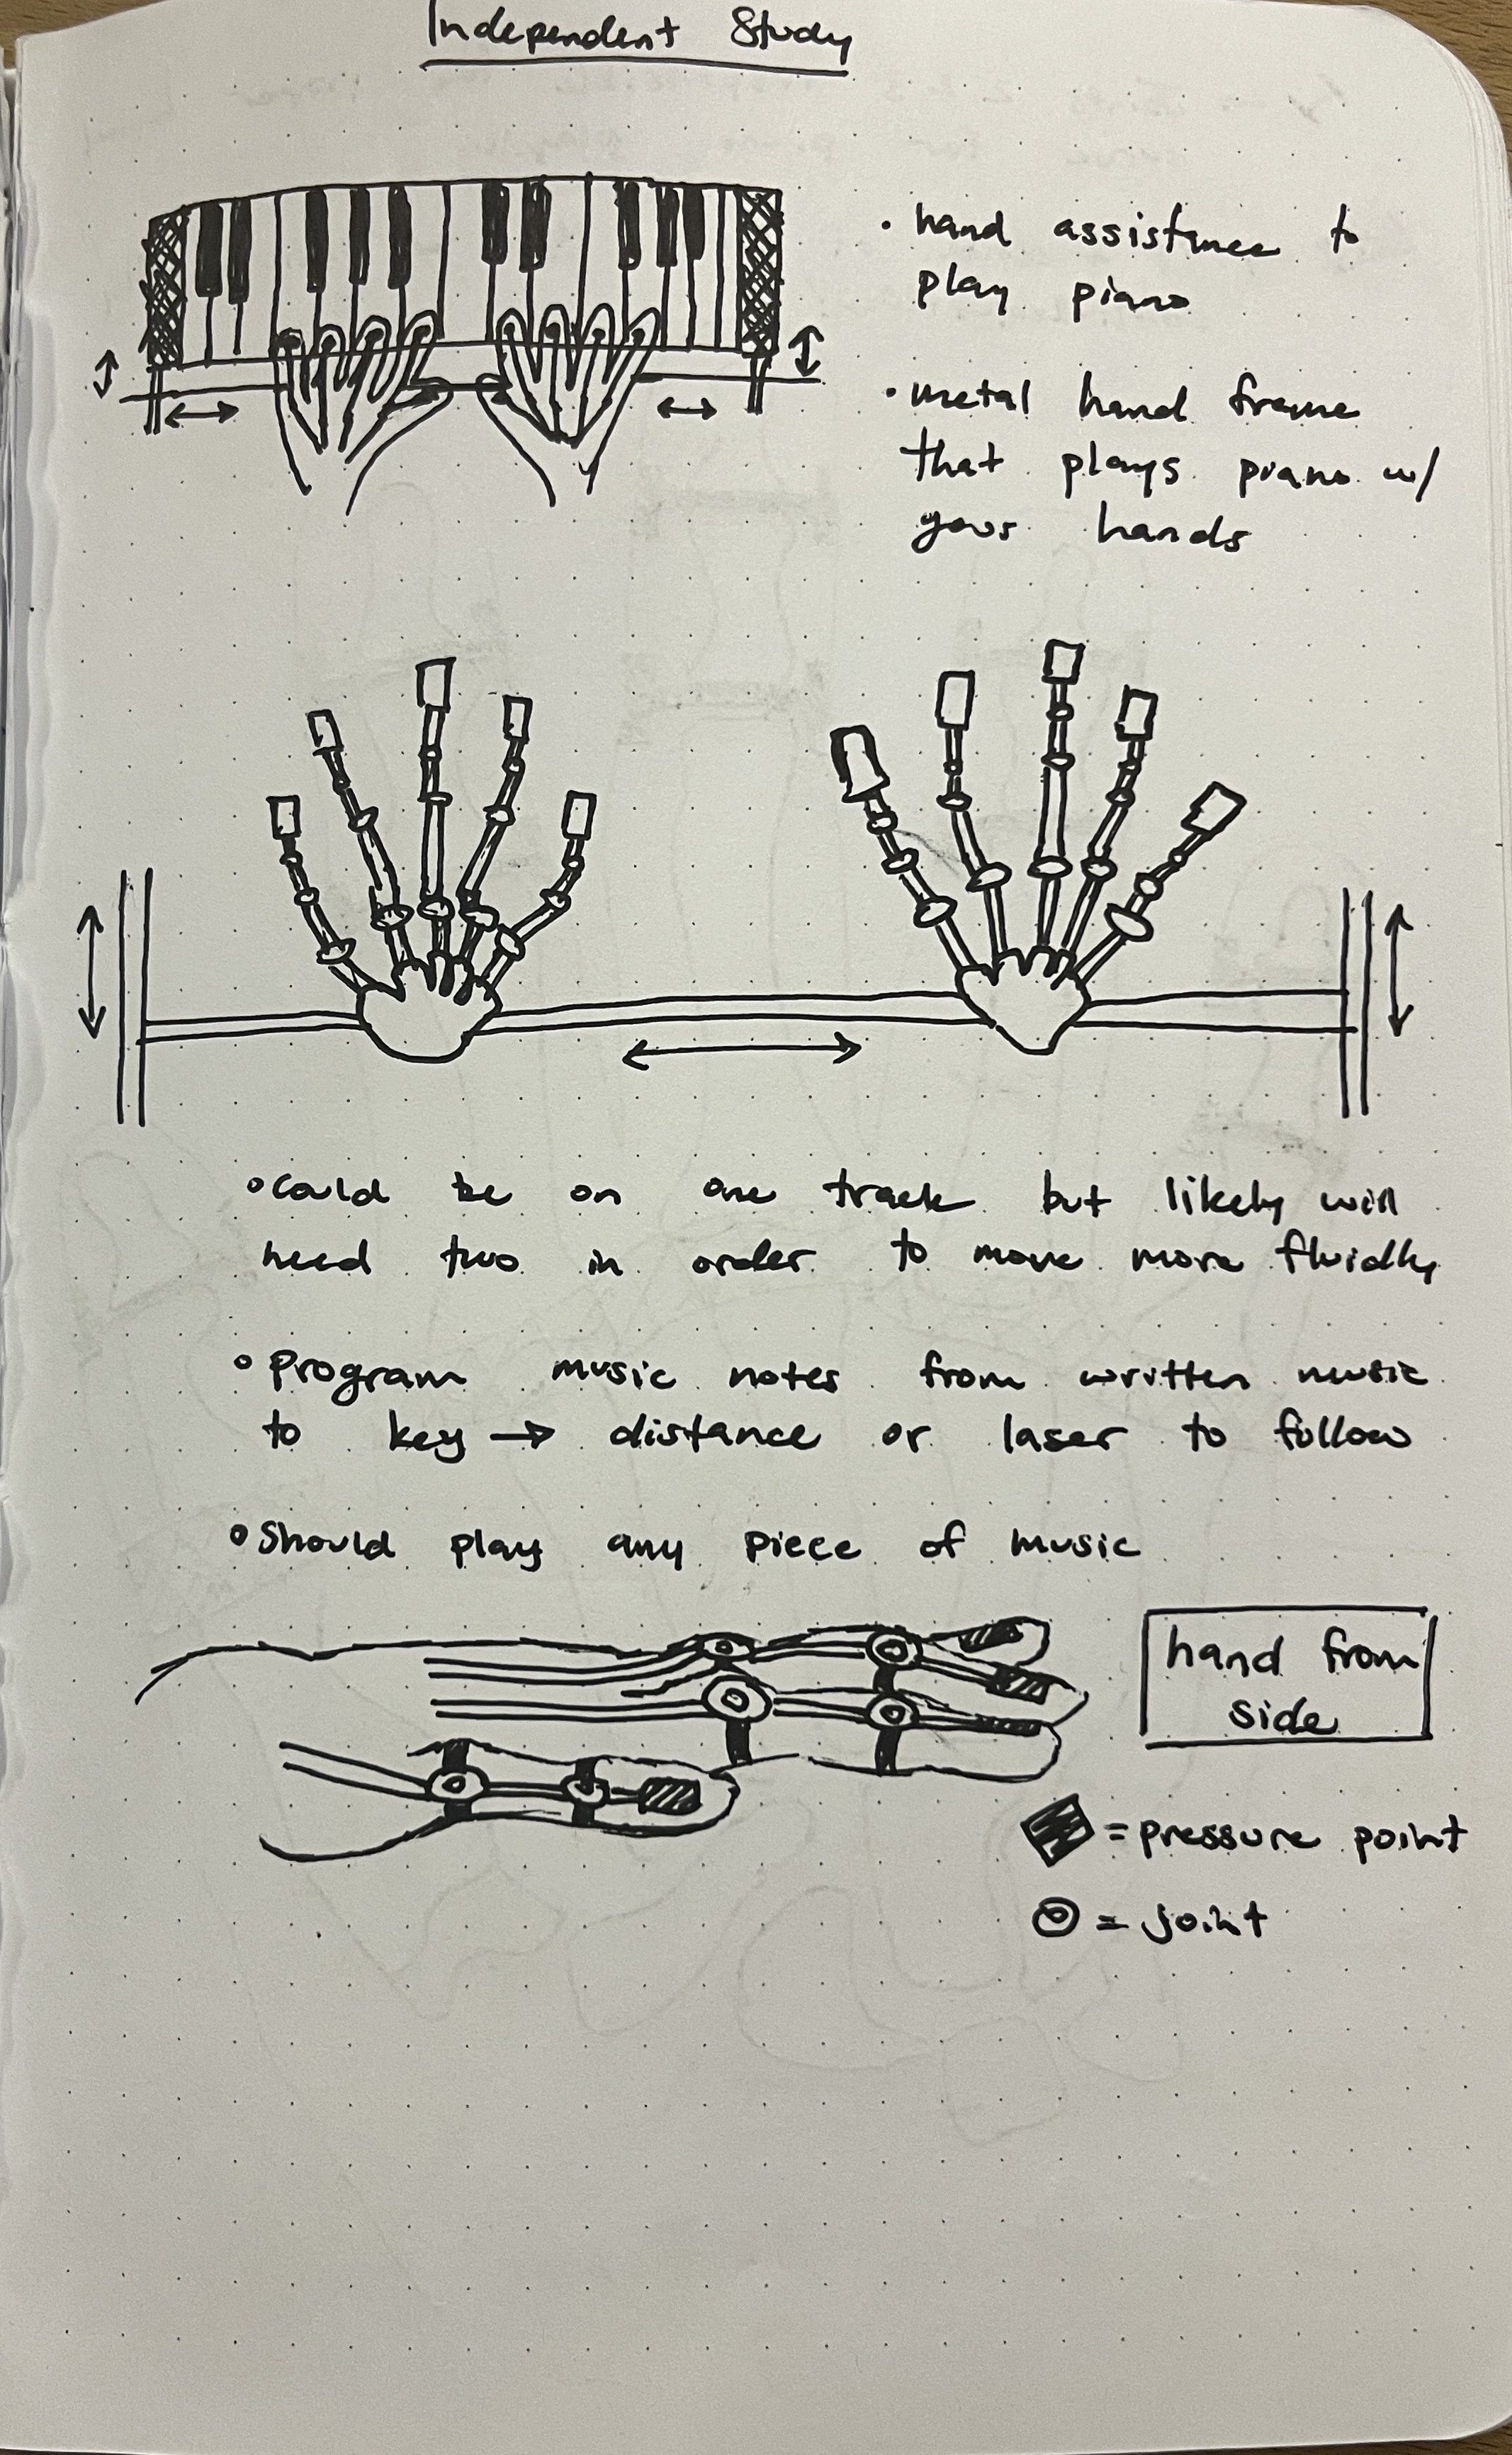 Independent Study
• hand assistance to
play piano
• metal hand frame
that plays piano w/
your hands
• could be on one track but likely will
need two in order to move more fluidly
• Program music notes from written music
to key → distance or laser to follow
• Should play any piece of music
hand from
side
= pressure point
= joint